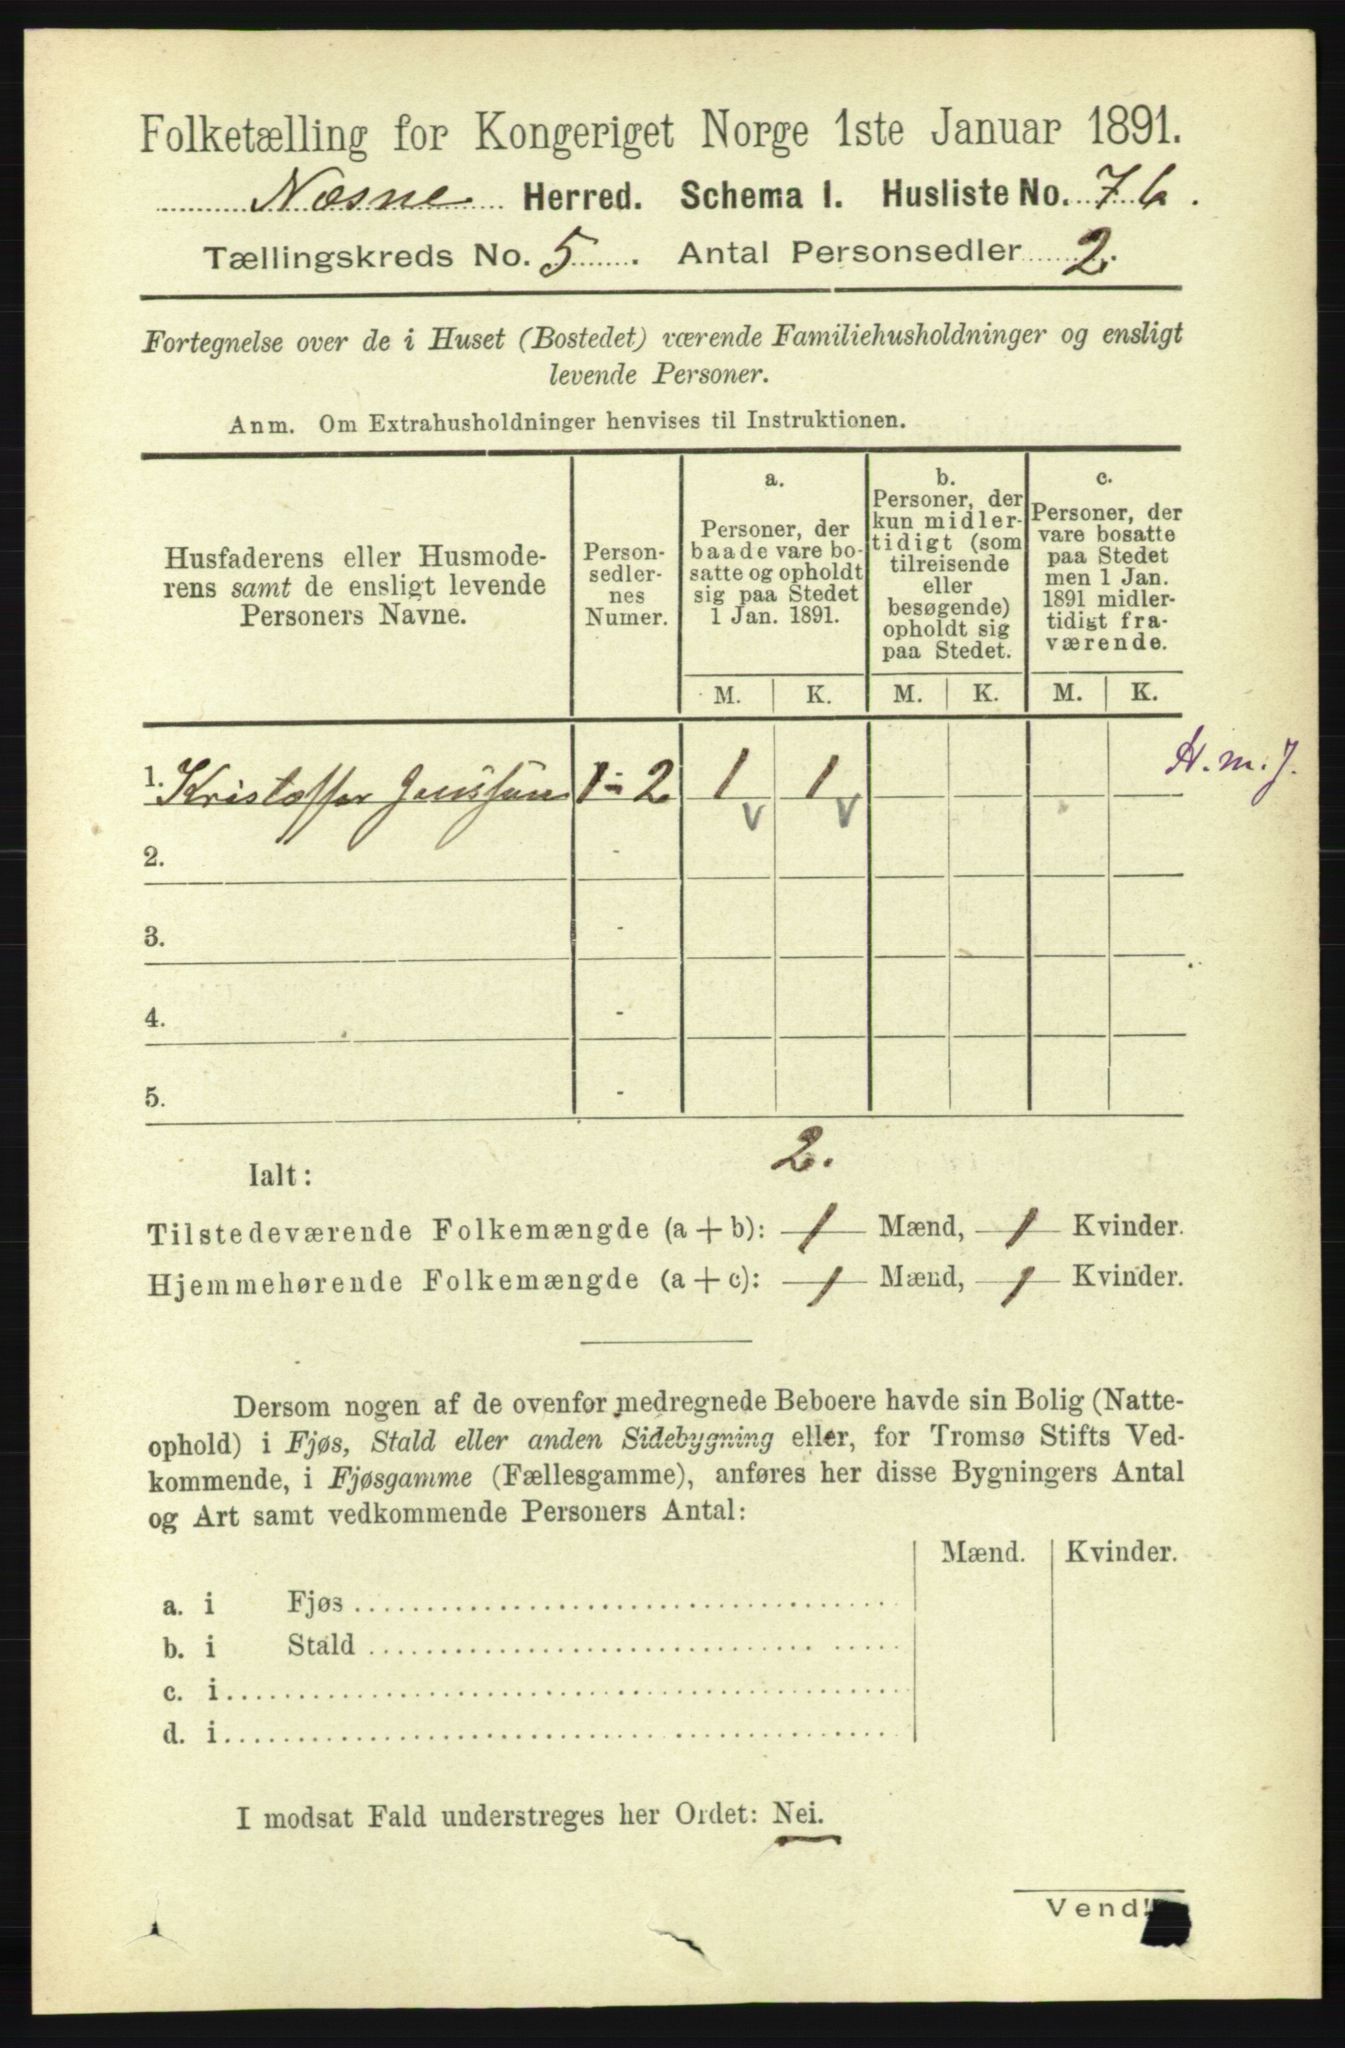 Folketælling for Kongeriget Norge 1ste Januar 1891.
Næsne Herred. Schema I. Husliste No. 76.
Tællingskreds No. 5. Antal Personsedler 2.
Fortegnelse over de i Huset (Bostedet) værende Familiehusholdninger og ensligt
levende Personer.
Anm. Om Extrahusholdninger henvises til Instruktionen.
Husfaderens eller Husmode-
rens samt de ensligt levende
Personers Navne.
Person-
sedler-
nes
Numer.
a.
Personer, der
baade vare bo-
satte og opholdt
sig paa Stedet
1 Jan. 1891.
b.
Personer, der
kun midler-
tidigt (som
tilreisende
eller
besøgende)
opholdt sig
paa Stedet.
c.
Personer, der
vare bosatte
paa Stedet
men 1 Jan.
1891 midler-
tidigt fra-
værende.
M. K. M. K. M. K.
1. Kristoffer Jenssen 1-2 1 1 H.m.J.
v v
2. -
3. -
4. -
5. -
2.
Ialt:
Tilstedeværende Folkemængde (a + b): 1 Mænd, 1 Kvinder.
Hjemmehørende Folkemængde (a + c): 1 Mænd, 1 Kvinder.
Dersom nogen af de ovenfor medregnede Beboere havde sin Bolig (Natte-
ophold) i Fjøs, Stald eller anden Sidebygning eller, for Tromsø Stifts Ved-
kommende, i Fjøsgamme (Fællesgamme), anføres her disse Bygningers Antal
og Art samt vedkommende Personers Antal:
Mænd. Kvinder.
a. i Fjøs
b. i Stald
c. i
d. i
I modsat Fald understreges her Ordet: Nei.
Vend!